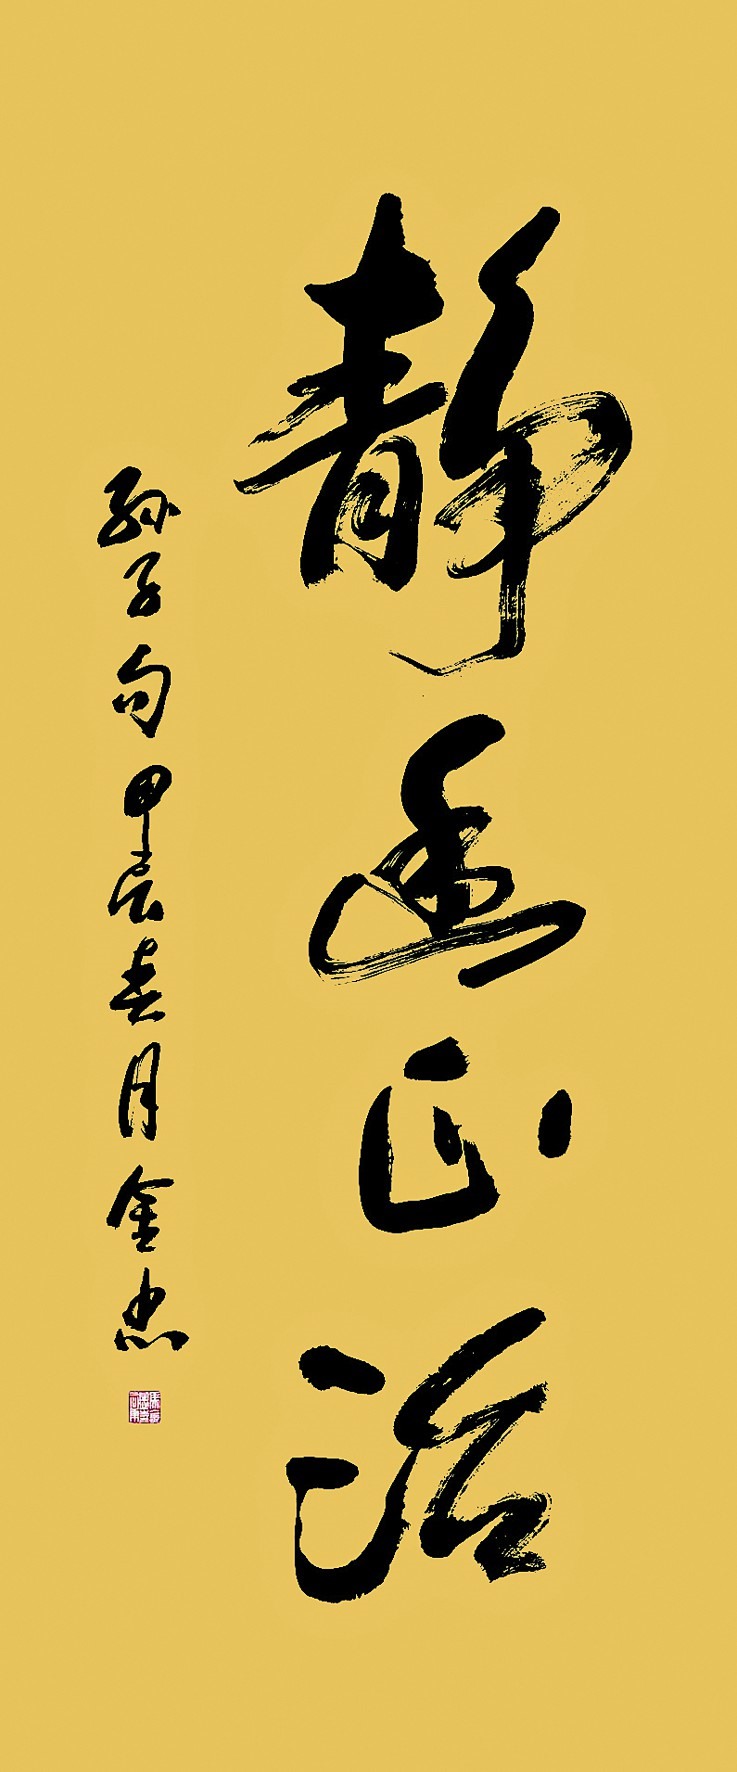 静幽正治
孙子句甲辰春月金忠